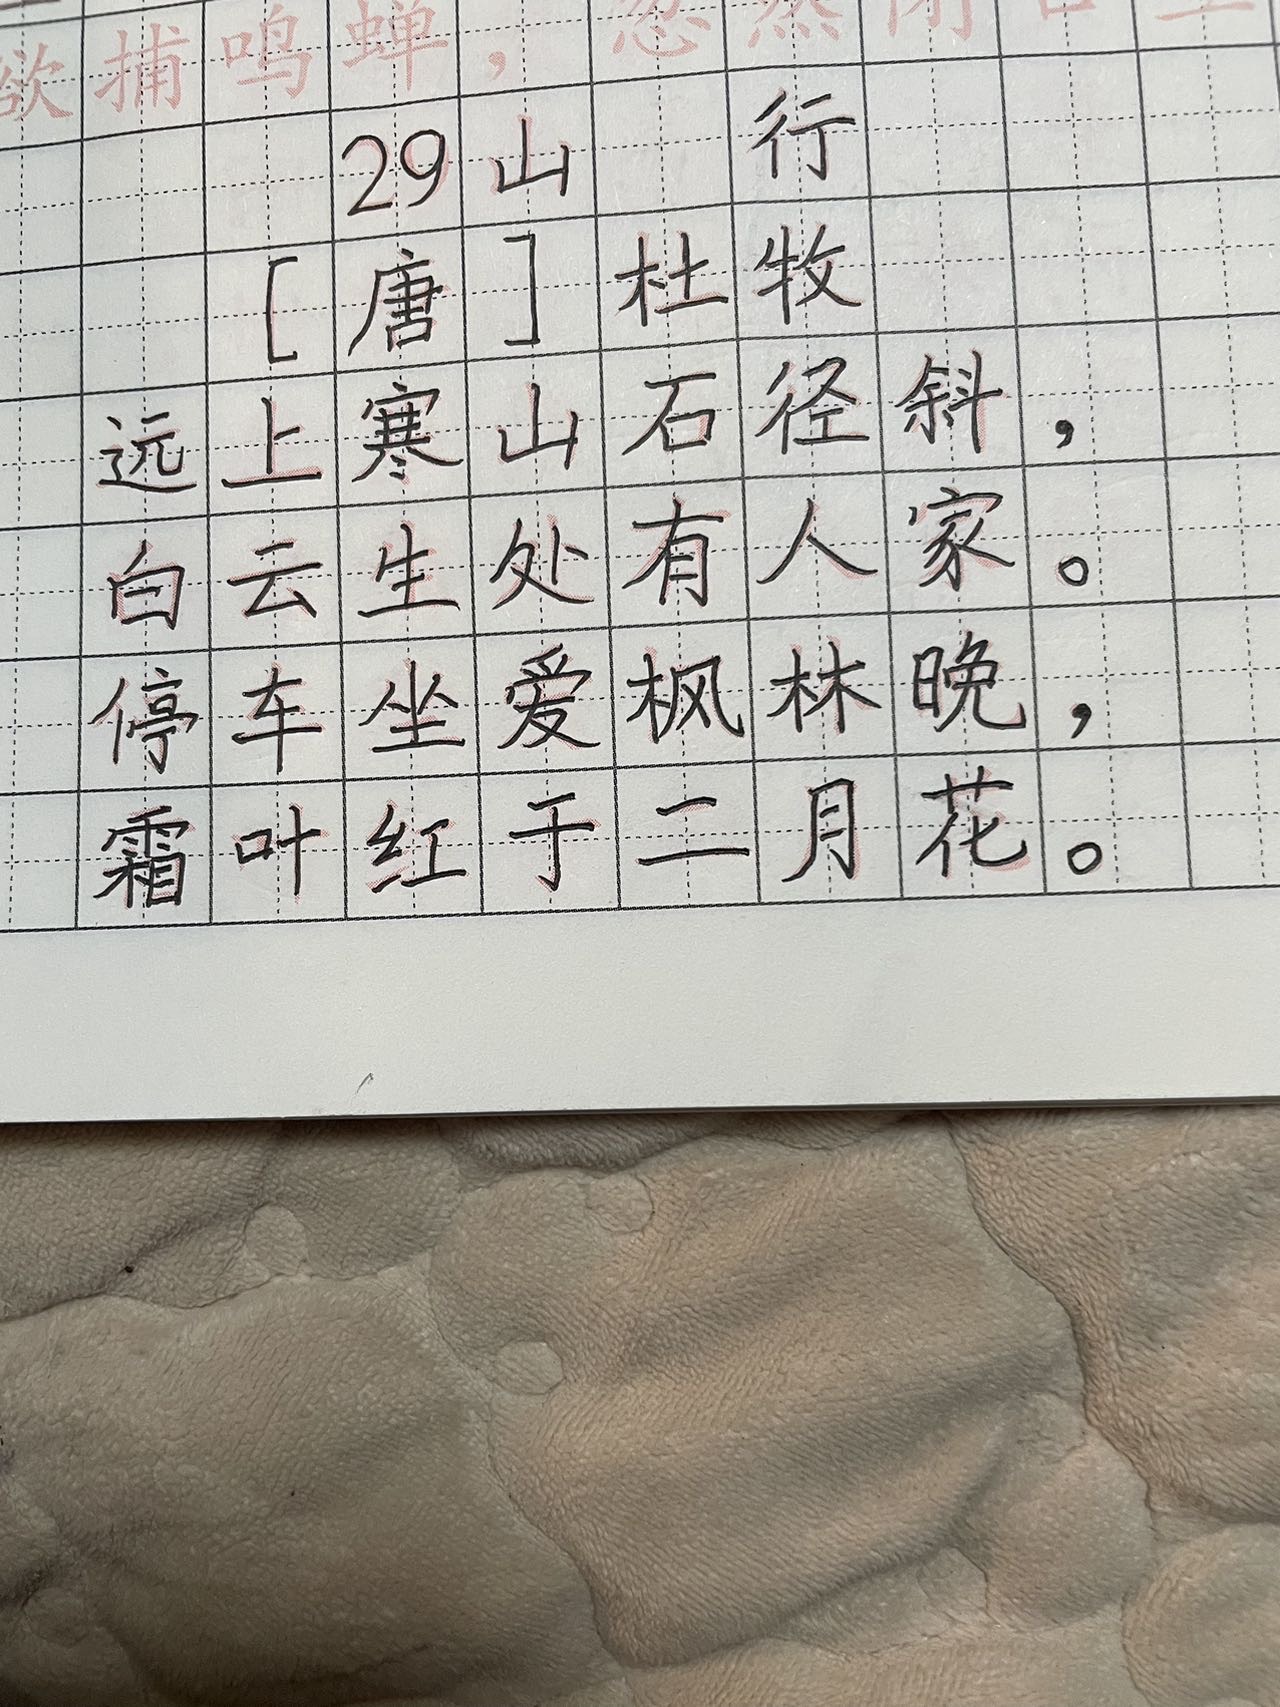 欲捕鸣蝉，忽然闭口立
29山 行
[唐]杜牧
远上寒山石径斜，
白云生处有人家。
停车坐爱枫林晚，
霜叶红于二月花。